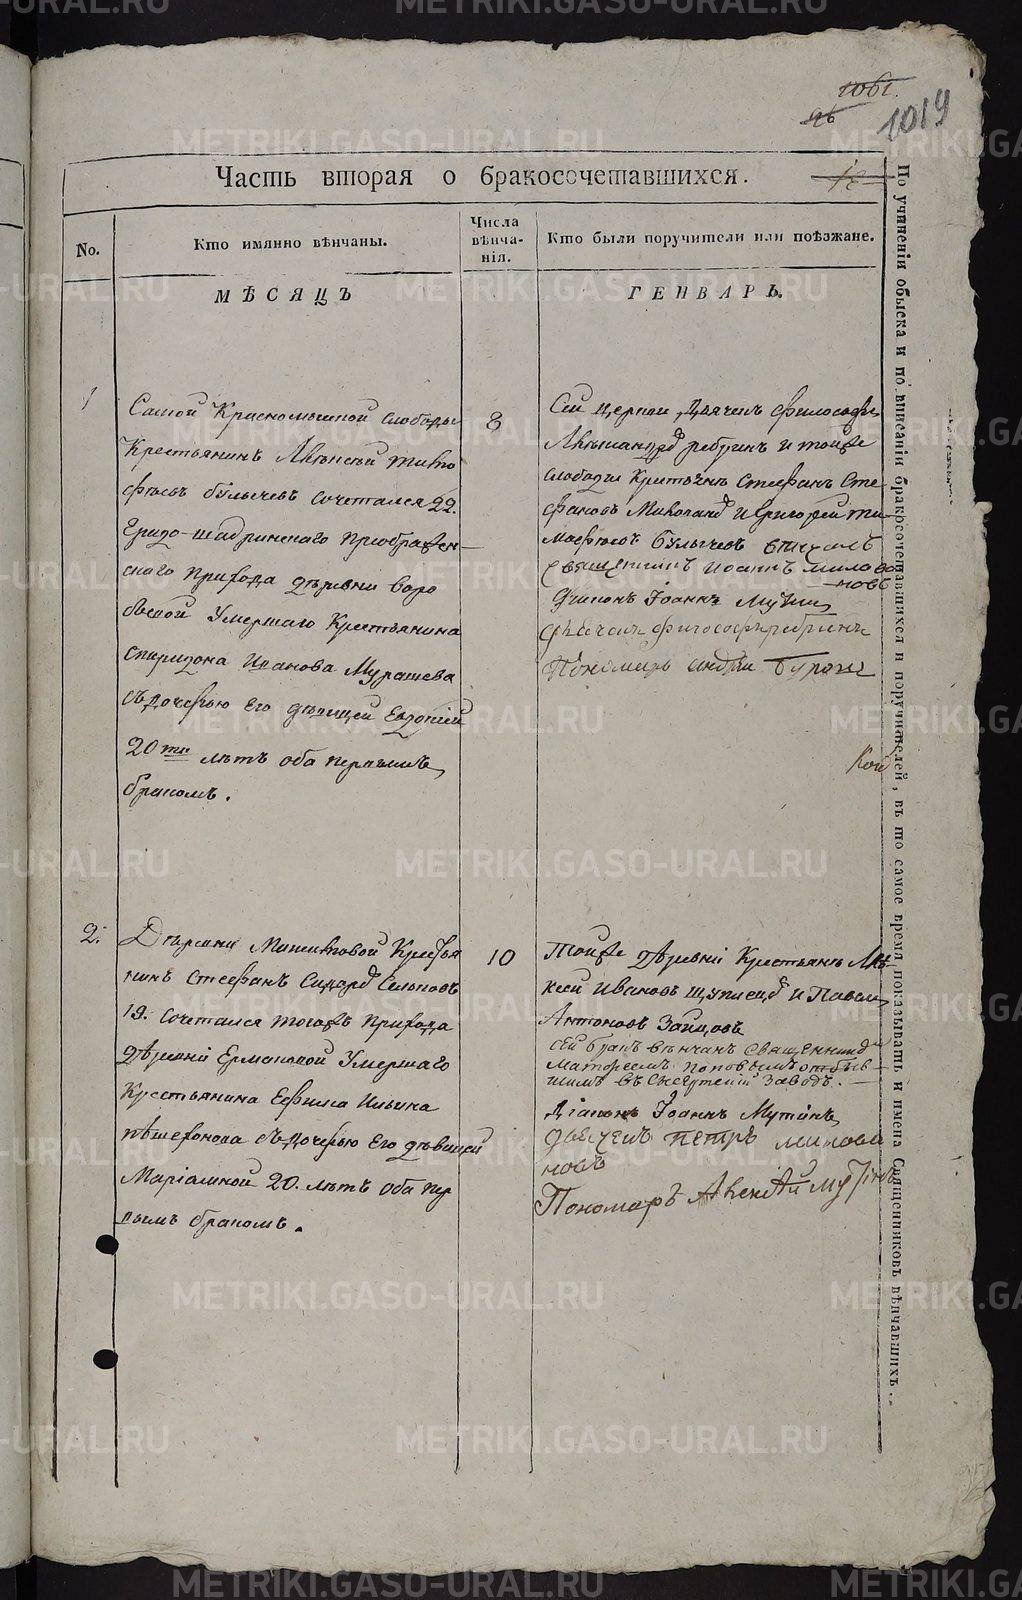 1061.
96
1019
Часть вторая о бракосочетавшихся.
No.
Кто имянно вѣнчаны.
Числа
вѣнча-
нія.
Кто были поручители или поѣзжане.
МѢСЯЦЪ
ГЕНВАРЬ.
1
Самой Красномыской слободы
Крестьянинъ Алѣксѣй тимо
фѣевъ булычевъ сочетался 22.
приображен-
скаго прихода дѣревни воро
бьевой Умершаго Крестьянина
спиридона Иванова Мурашева
съ дочерью Его дѣвицей Евдокіей
20ти лѣтъ оба первымъ
бракомъ.
8
Сей церкви Дьячекъ философъ
ребринъ и тойже
слободы стефанъ сте
фановъ и григорей ти-
мофѣевъ булычевъ
священникъ иоаннъ милова
новъ
Диаконъ Іоаннъ Мутин
дьячекъ философъ ребринъ
Пономарь андрей
2.
Дѣревни Крестья
нинъ стефанъ
19. сочетался тогожъ прихода
дѣревни Ермаковой Умершаго
Крестьянина Ефима Ильина
съ дочерью Его дѣвицей
Маріамной 20. лѣтъ оба пер
вымъ бракомъ.
10
Тойже дѣревни Крестьяне Алѣ
ксей Ивановъ и Павелъ
Антоновъ Зайцовъ
сей бракъ вѣнчанъ священником
матфеемъ поповымъ отбыв
шимъ въ сысертский заводъ. —
Діаконъ Іоаннъ Мутинъ
дьячекъ петръ милова
новъ
Пономарь Алексѣй Мутинъ
По учиненіи обыска и по вписаніи бракосочетавшихся и поручителей, въ то самое время показывать и имена Священниковъ вѣнчавшихъ.
METRIKI.GASO-URAL.RU